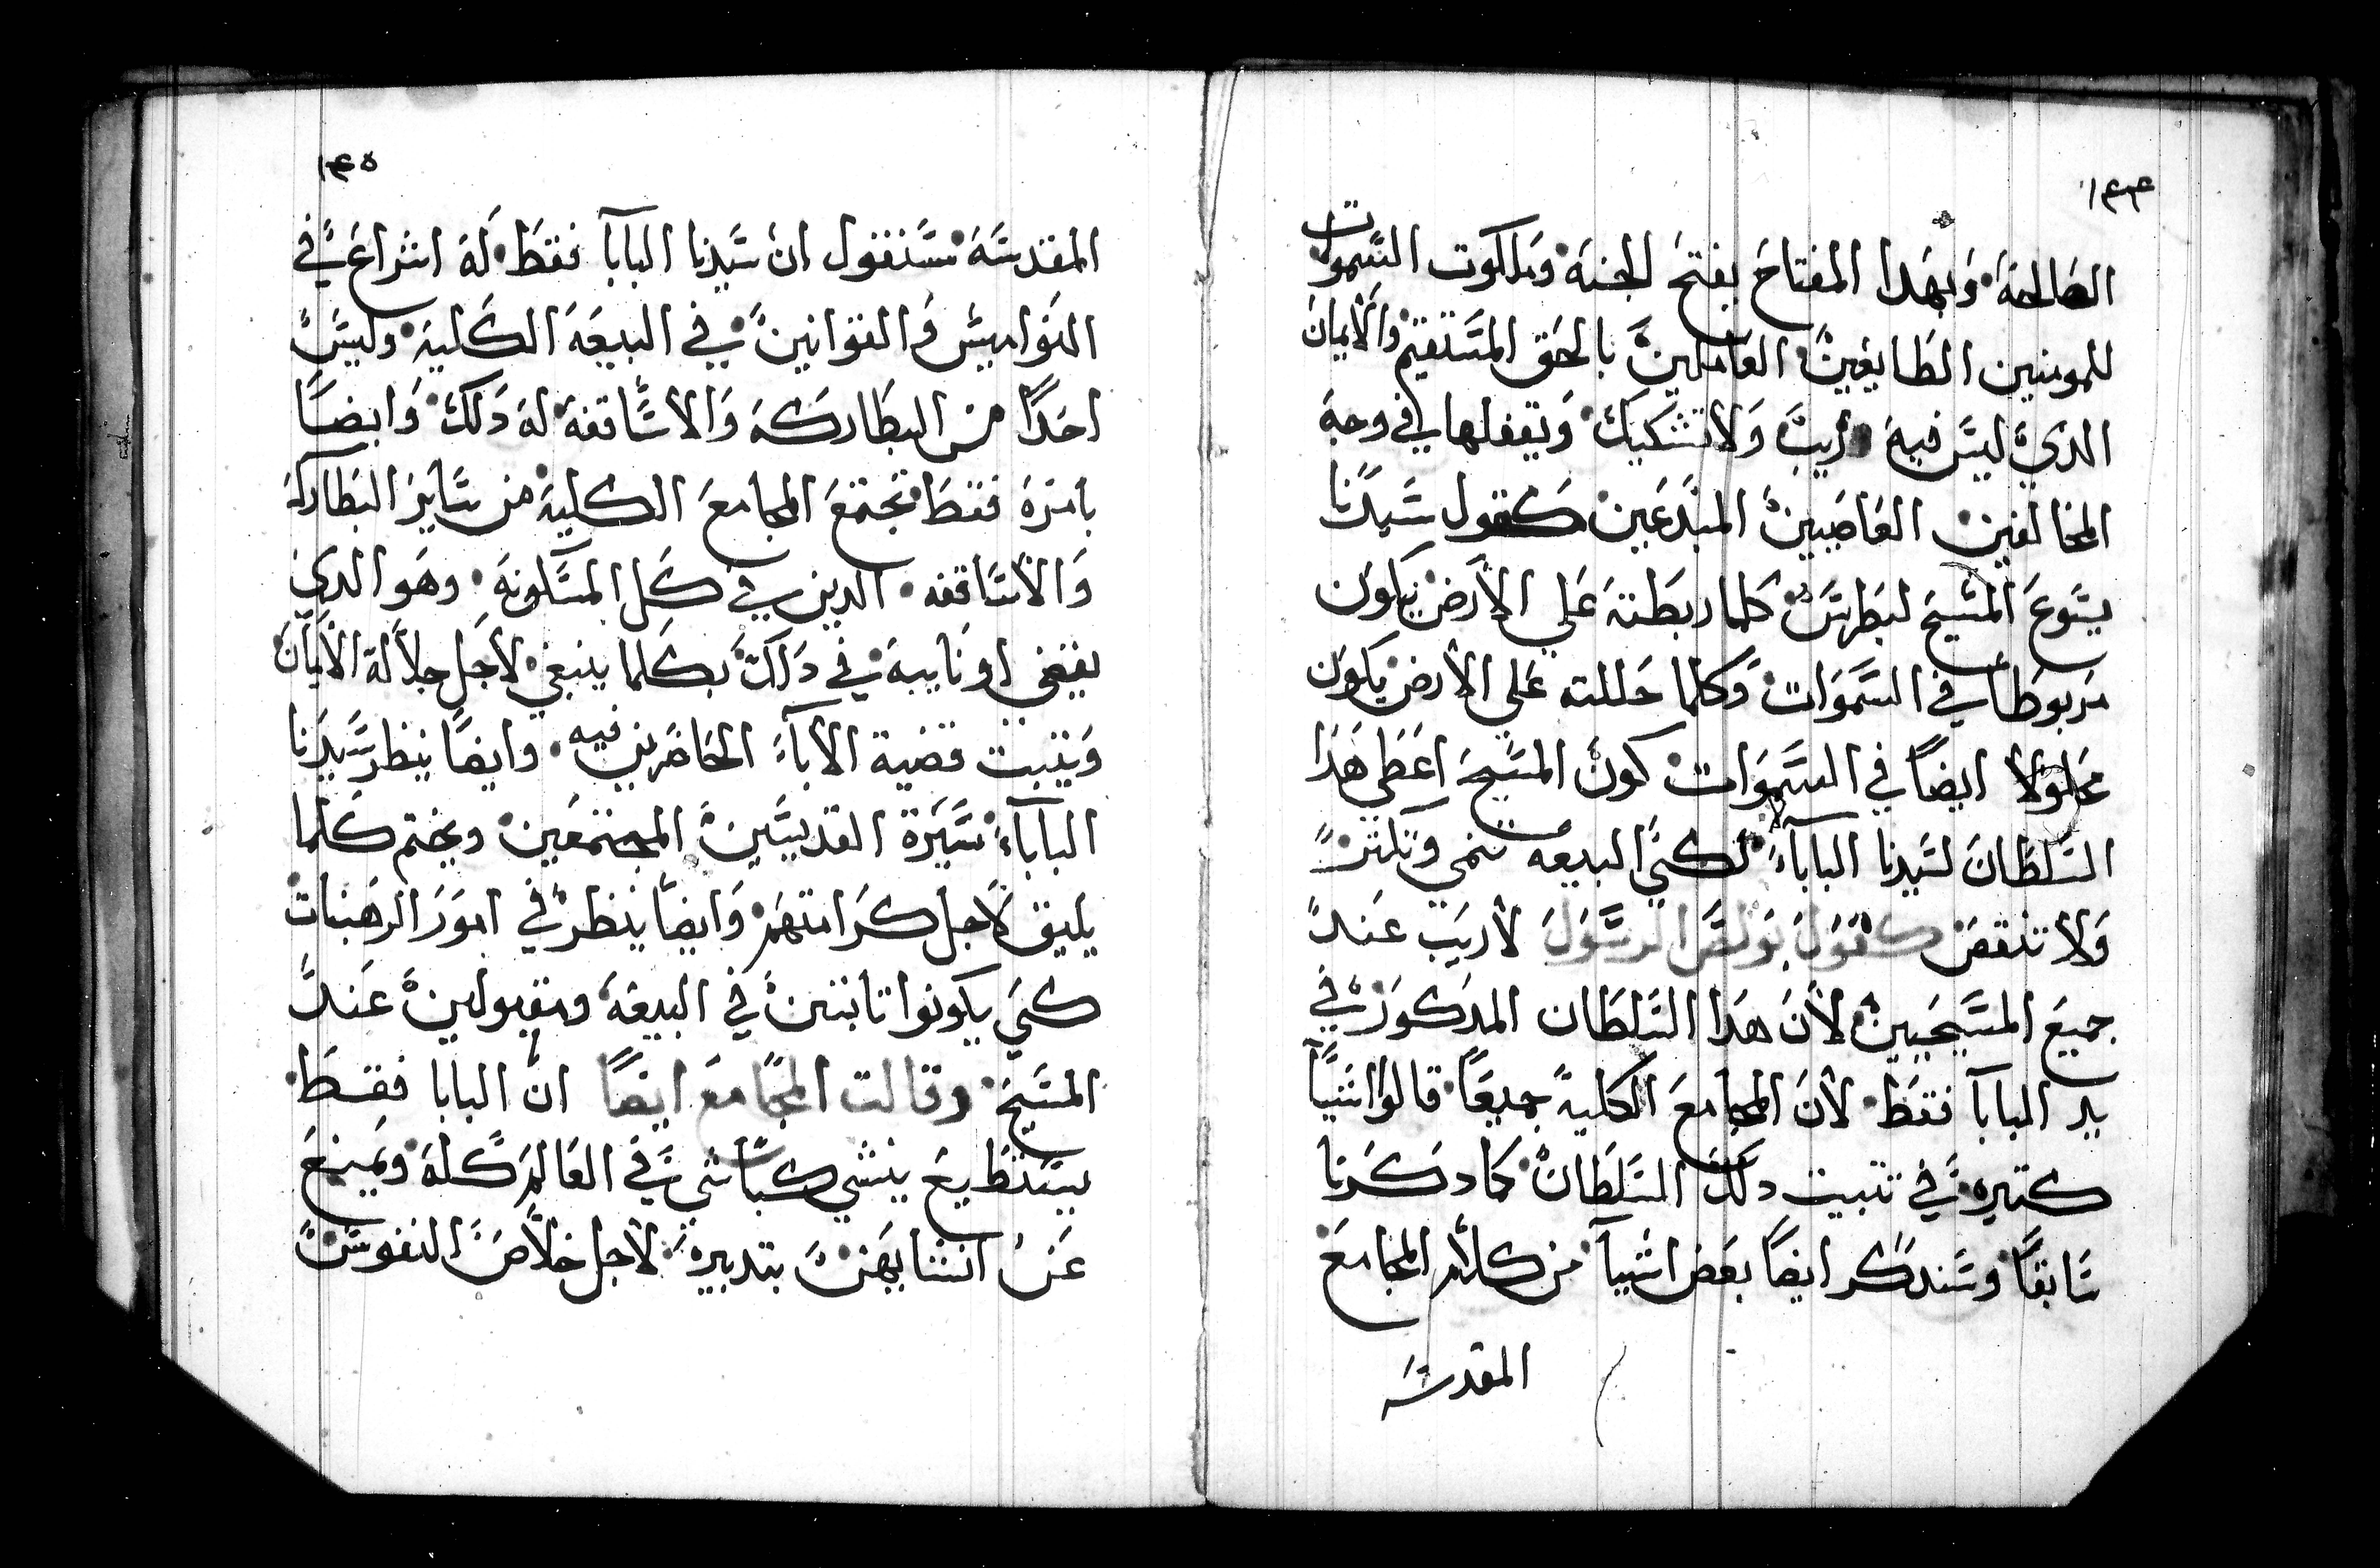 ١٤٤
الصالحة وبهدا المفتاح يفتح الجنة وملكوت السموات
للمومنين الطايعين العاملين بالحق المستقيم والايمان
الذي ليس فيه ريب ولا تشكيك ويقفلها في وجه
المخالفين العاصيين المبدعين كقول سيدنا
يسوع المسيح لبطرس كلما ربطته علي الارض يكون
مربوطا في السموات وكلما حللته علي الارض يكون
محلولا ايضا في السموات كون المسيح اعطي هدا
السلطان لسيدنا البابا لكي البيعه تنمي وتكتر
ولا تنقص كقول بولص الرسول لاريب عند
جميع المسيحيين لان هدا السلطان المدكور في
يد البابا فقط لان المجامع الكلية جميعا قالوا اشيا
كتيره في تتبيت دلك السلطان كما دكرنا
سابقا وسندكر ايضا بعض اشيا من كلام المجامع
المقدسه
١٤٥
المقدسة سنقول ان سيدنا البابا فقط له اشراع في
النواميس والقوانين في البيعة الكلية وليس
احدا من البطاركة والاساقفة له دلك وايضا
بامره فقط تجتمع المجامع الكلية من ساير البطاركة
والاساقفه الدين في كل المسكونة وهو الدي
يقضي او نايبه في داك بكلما ينبغي لاجل جلالة الايمان
ويتبت قضية الاباء الحاضرين فيه وايضا ينظر سيدنا
الباباء سيرة القديسين المجتمعين ويختم كلما
يليق لاجل كرامتهم وايضا ينظر في امور الرهبنات
كي يكونوا تابتين في البيعة ومقبولين عند
المسيح وقالت المجامع ايضا ان البابا فقط
يستطيع ينشي كباشي في العالم كله ويمنع
عن انتشابهن بتدبيره لاجل خلاص النفوس